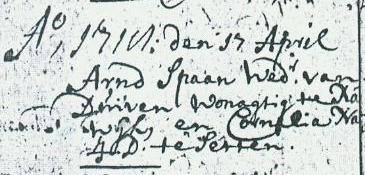 Ao, 1711. den 17 April
Arnd Spaan Wedr. van
Driven Wonagtig te
Wijk, en Cornelia
te Setten.